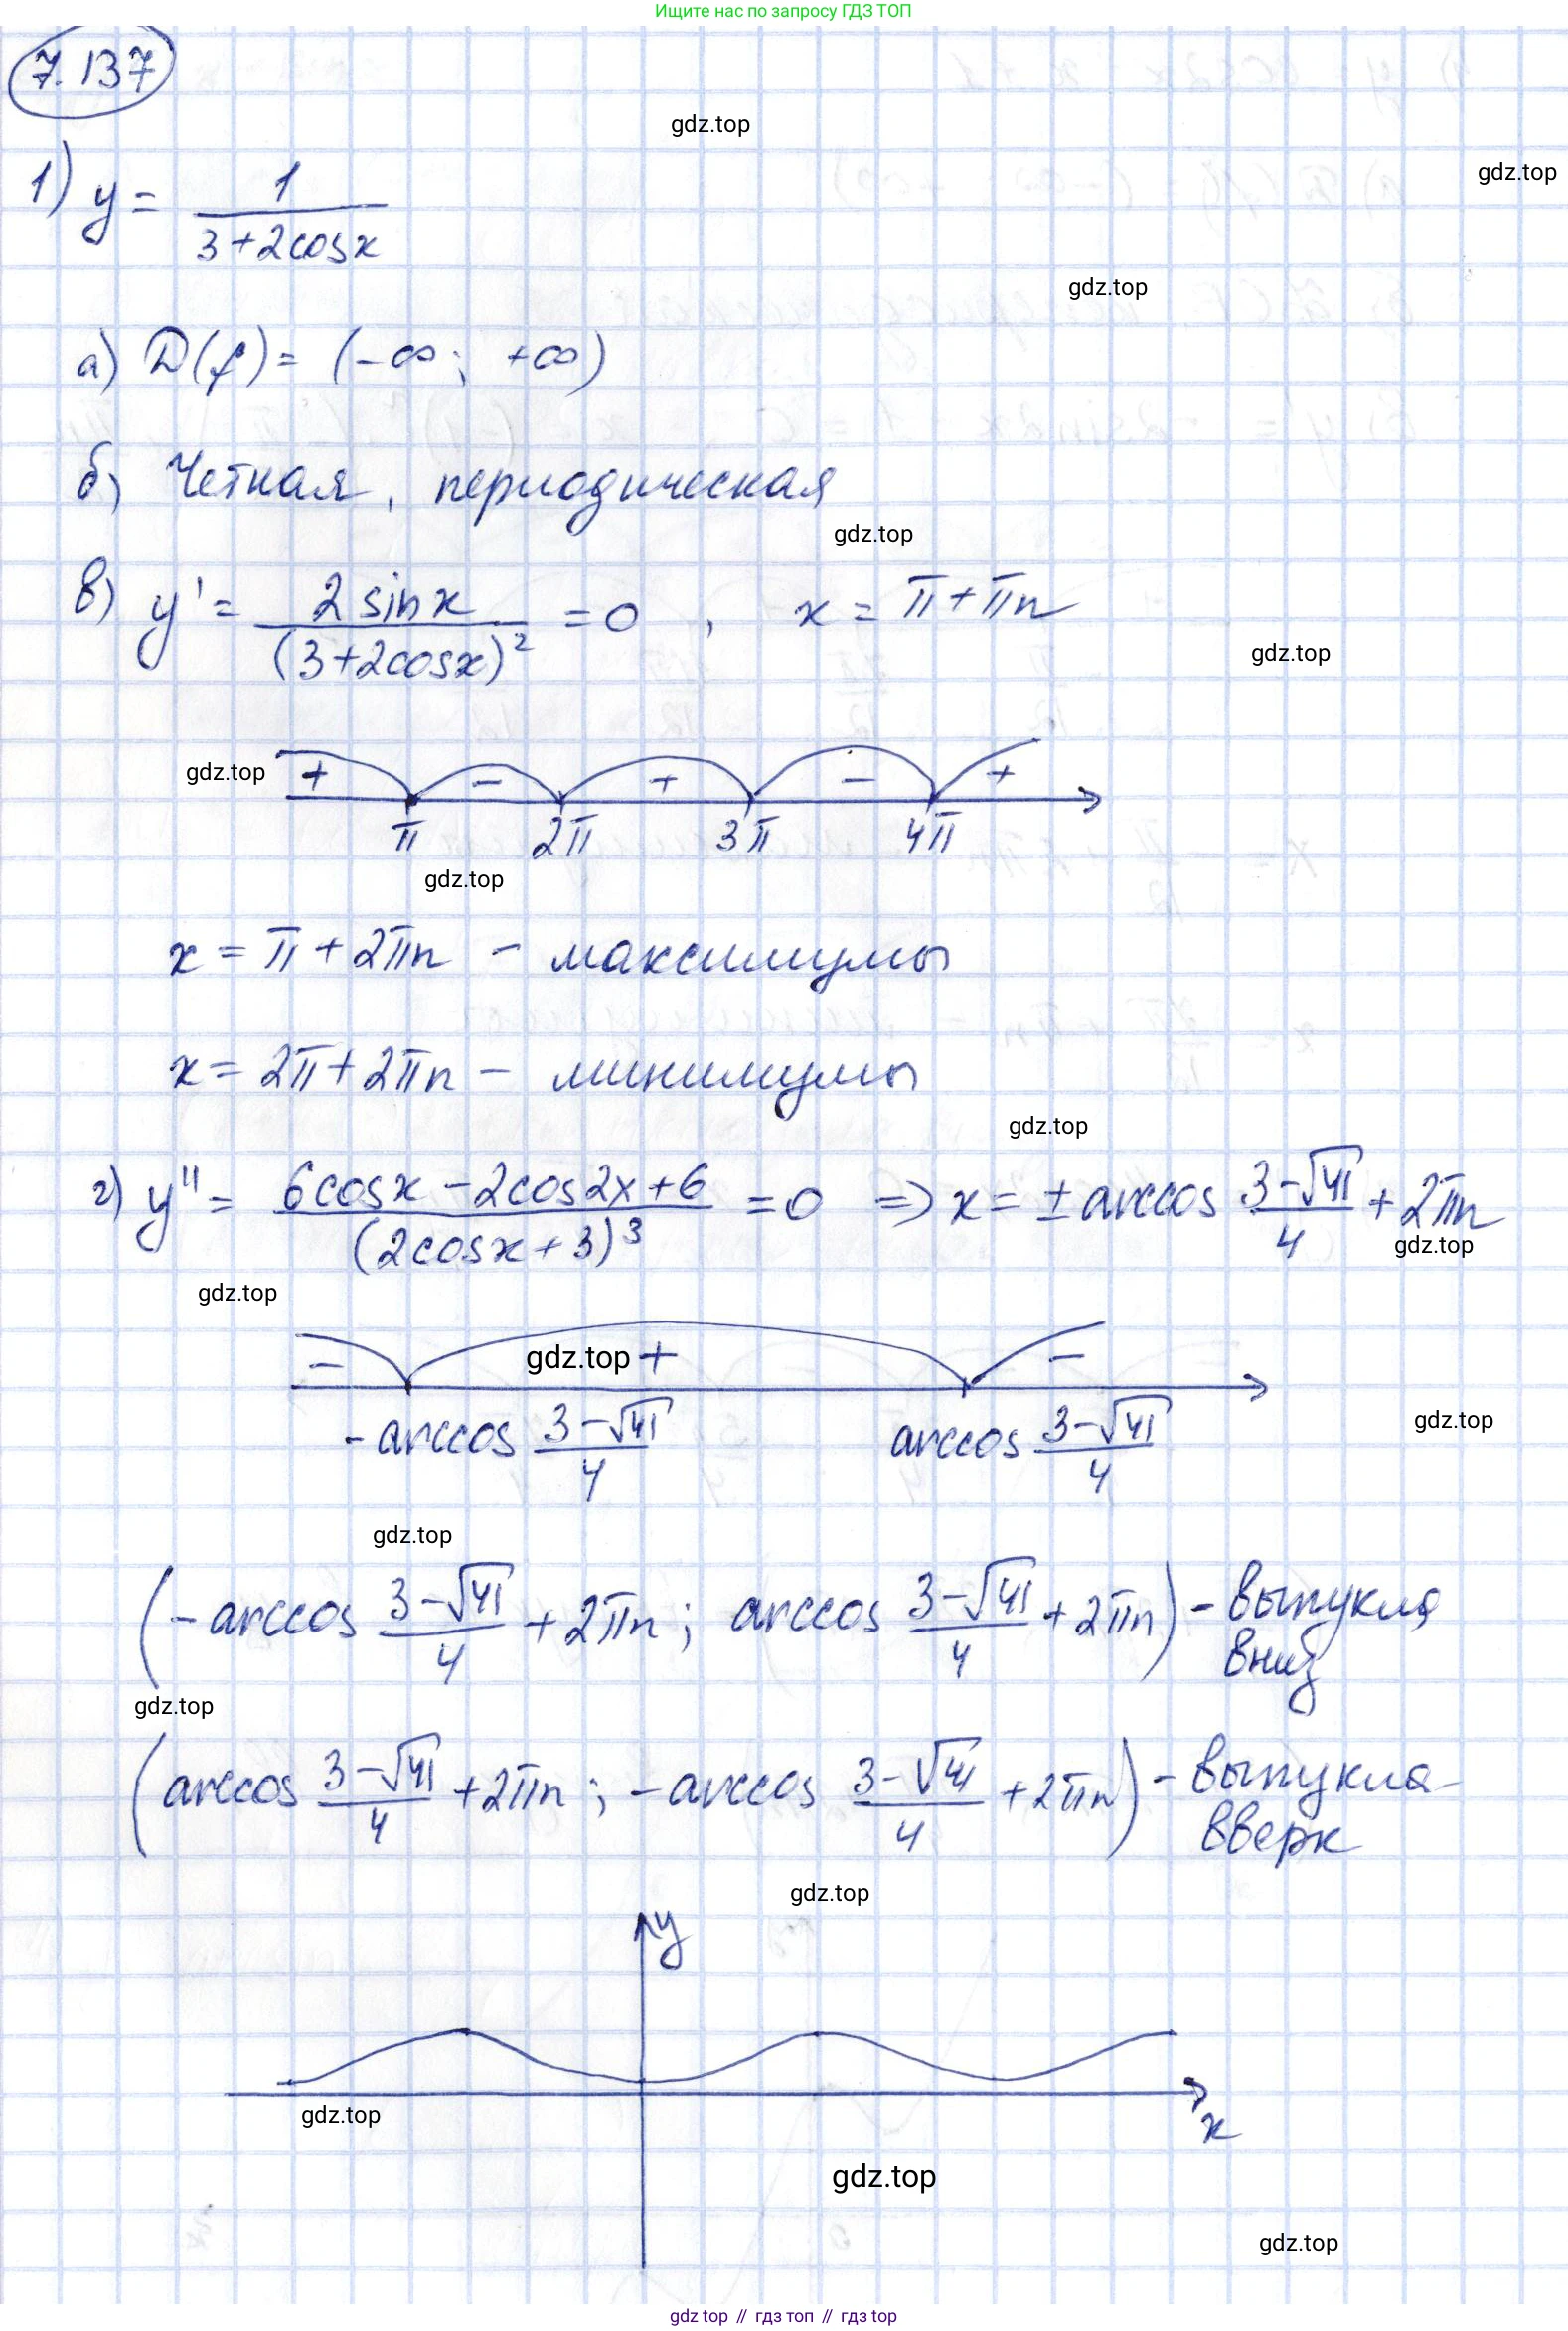 Ищите нас по запросу ГДЗ ТОП
7.137
gdz.top
1) y = 1/(3+2cosx)
gdz.top
gdz.top
а) D(f) = (-∞; +∞)
б) Четная, периодическая
gdz.top
в) y' = 2sinx/(3+2cosx)² = 0, x = π+πn
gdz.top
gdz.top
+ - + - +
π 2π 3π 4π
gdz.top
x = π + 2πn - максимумы
x = 2π + 2πn - минимумы
gdz.top
г) y'' = (6cosx - 2cos2x + 6)/(2cosx+3)³ = 0 => x = ± arccos (3-√41)/4 + 2πn
gdz.top
gdz.top
- gdz.top + -
-arccos (3-√41)/4 arccos (3-√41)/4
gdz.top
gdz.top
(-arccos (3-√41)/4 + 2πn; arccos (3-√41)/4 + 2πn) - выпукла
вниз
gdz.top
(arccos (3-√41)/4 + 2πn; -arccos (3-√41)/4 + 2πn) - выпукла
вверх
gdz.top
y
gdz.top
x
gdz.top
gdz.top
gdz top // гдз топ // гдз top